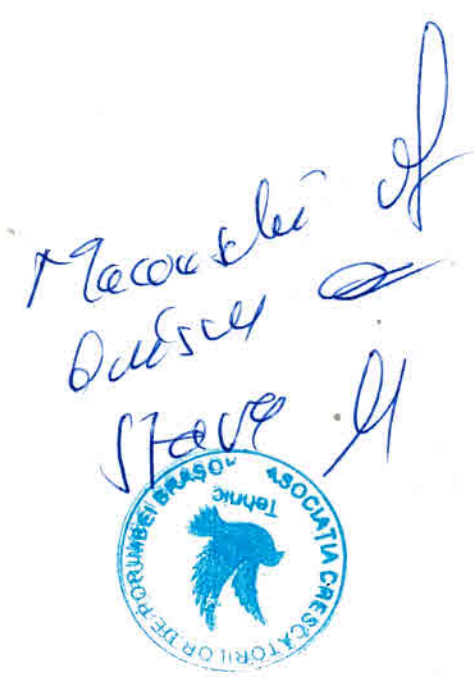 Macovschi
Stave
ASOCIAȚIA CRESCĂTORILOR DE PORUMBEI BRAȘOV
Tehnic